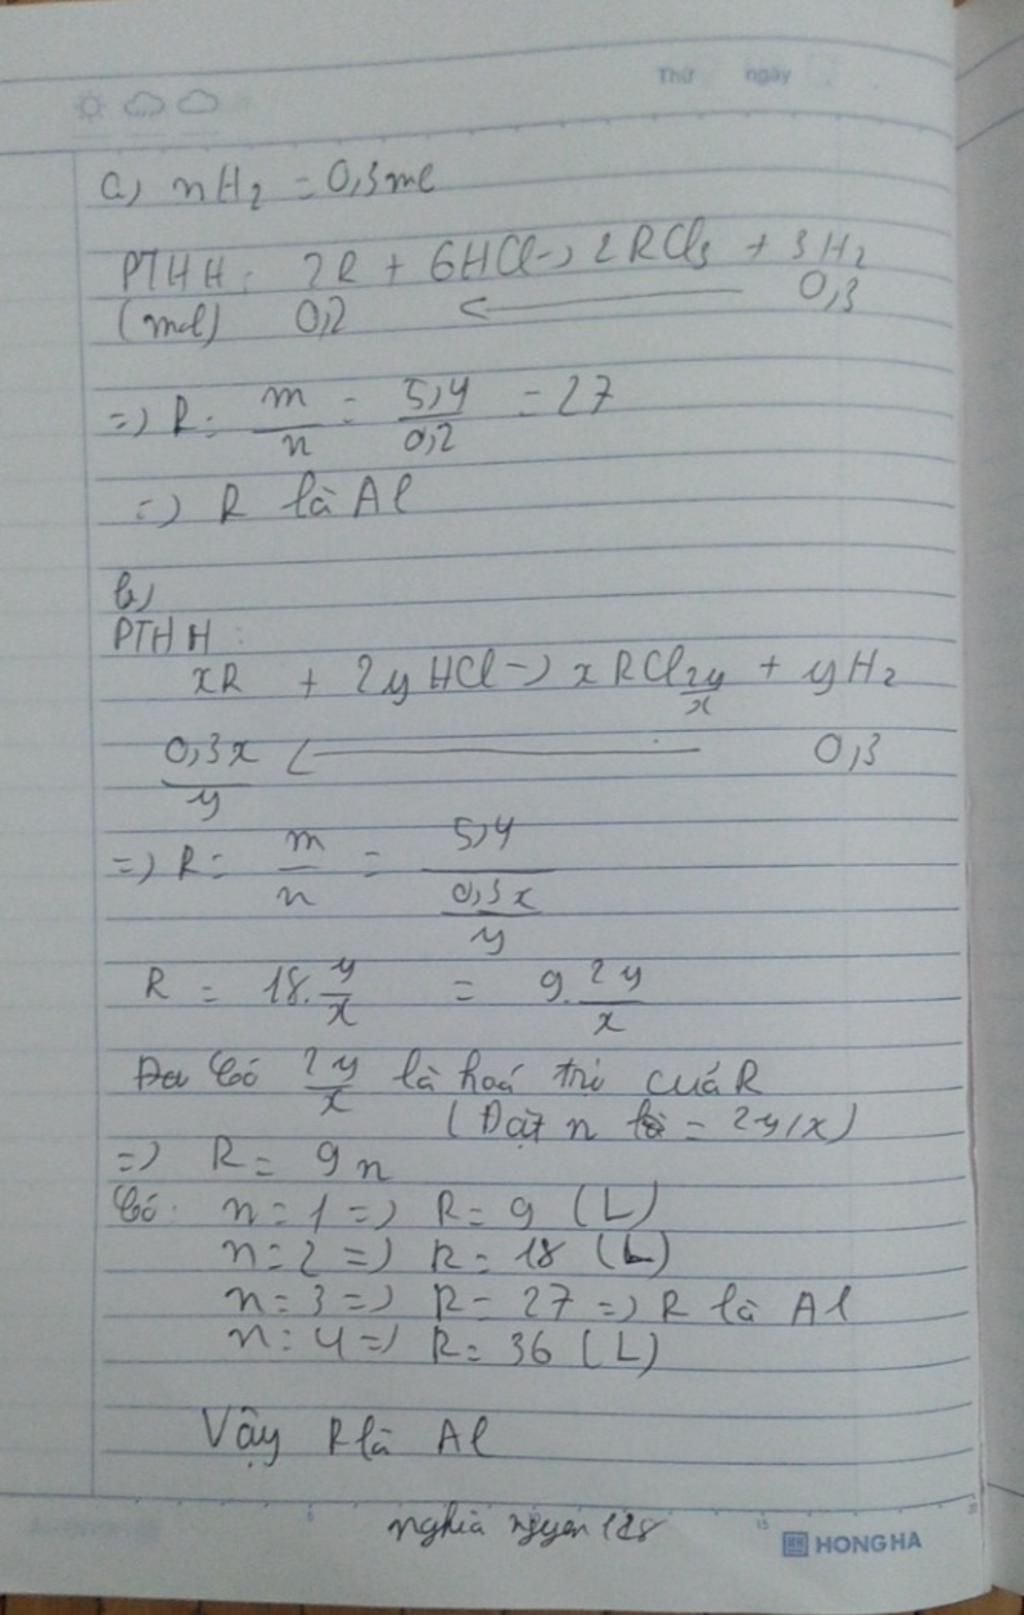 Thứ ngày
a) nH2 = 0,3ml
PTHH: 2R + 6HCl -> 2RCl3 + 3H2
(mol) 0,2 <— 0,3
=) R = m/n = 5,4/0,2 = 27
=) R là Al
b)
PTHH:
xR + 2yHCl -> xRCl2y/x + yH2
0,3x/y <— 0,3
=) R = m/n = 5,4/(0,3x/y)
R = 18.y/x = 9.2y/x
Do có 2y/x là hoá trị của R
(Đặt n = 2y/x)
=) R = 9n
Có: n = 1 =) R = 9 (L)
n = 2 =) R = 18 (L)
n = 3 =) R = 27 =) R là Al
n = 4 =) R = 36 (L)
Vậy R là Al
nghia nguyen 128
HONG HA